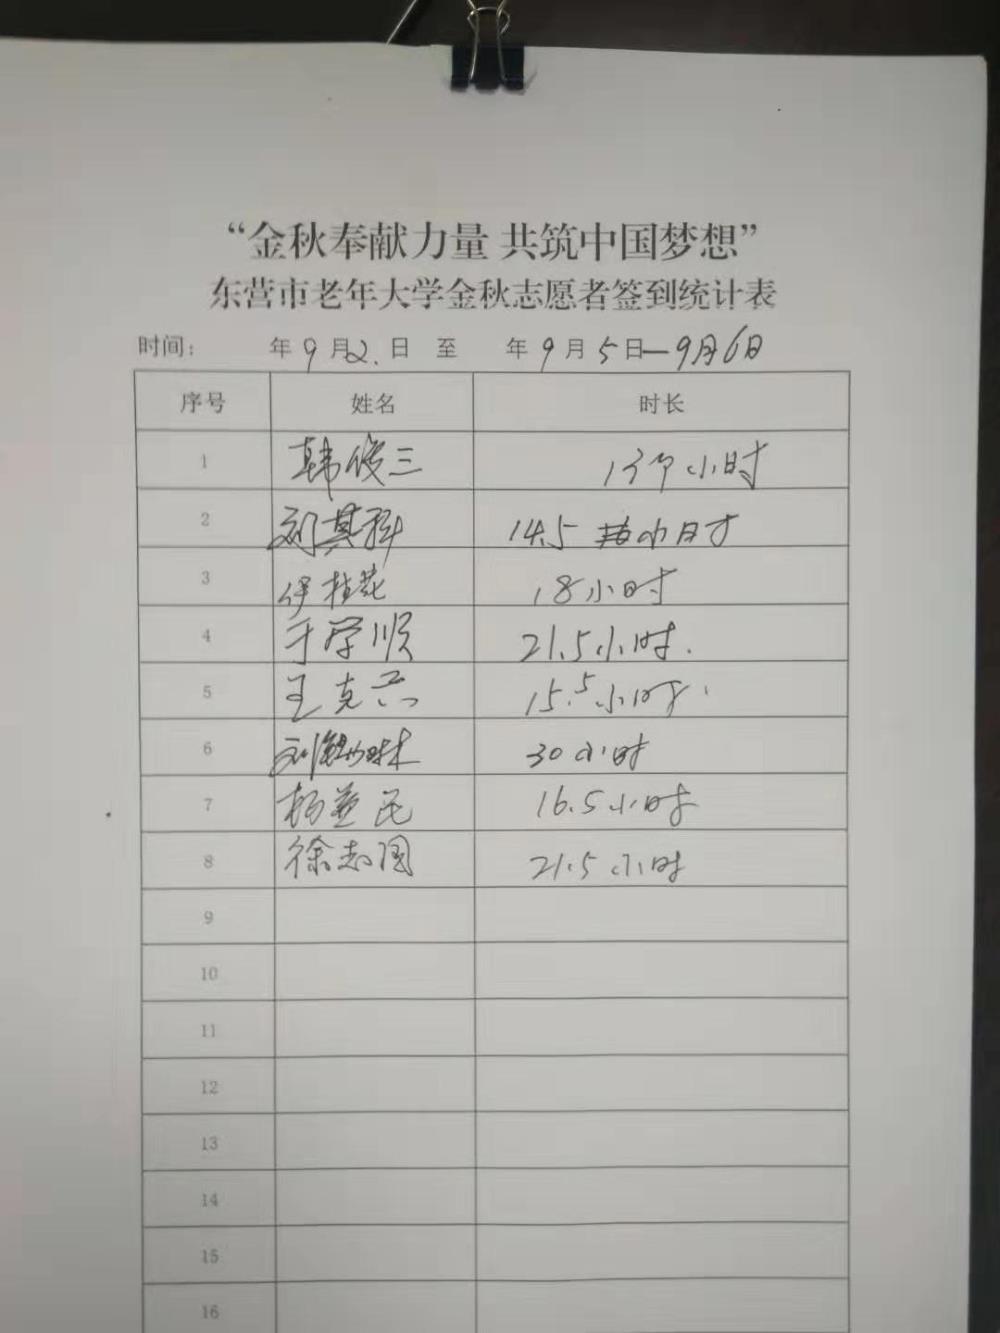 “金秋奉献力量 共筑中国梦想”
东营市老年大学金秋志愿者签到统计表
时间: 年9月2.日 至 年9月5日—9月6日
序号 姓名 时长
1 韩俊三 13个小时
2 刘其科 14.5 小时
3 伊桂花 18小时
4 于学顺 21.5小时.
5 王克 15.5小时.
6 刘 30小时
7 杨益民 16.5小时
8 徐志国 21.5小时
9
10
11
12
13
14
15
16